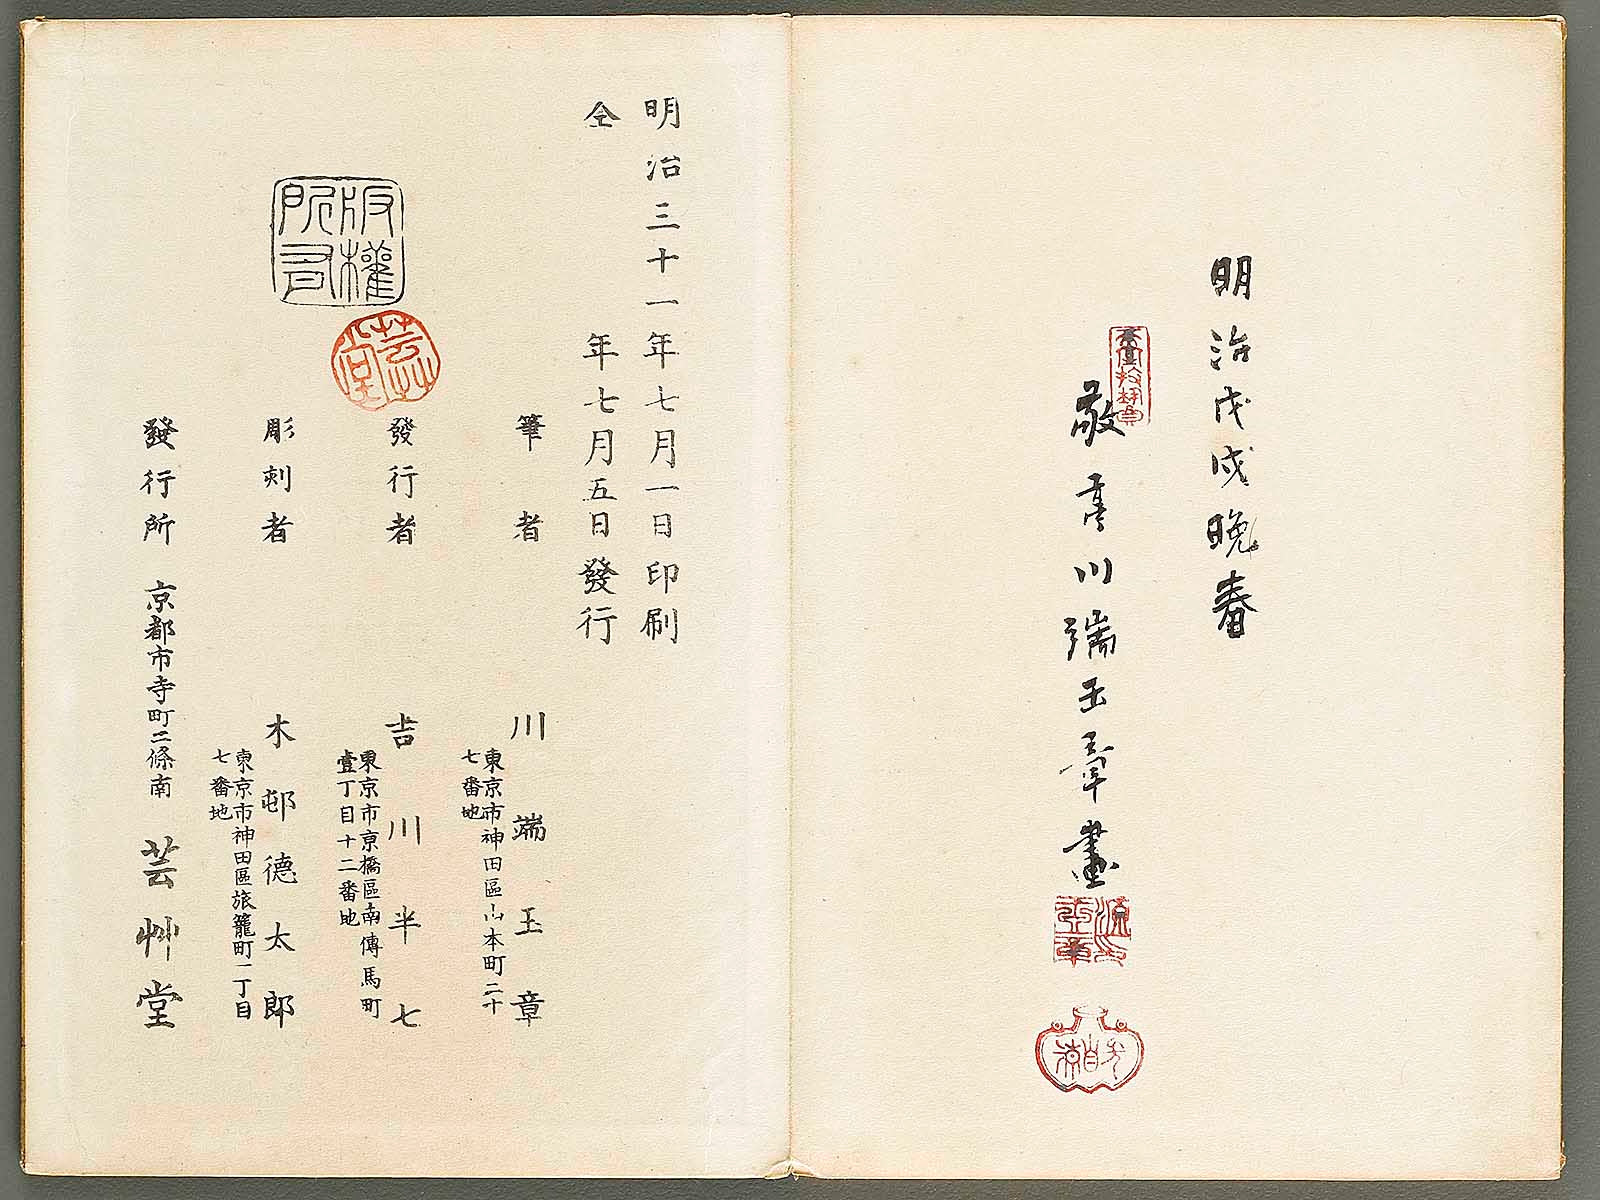 明治戊戌晩春
敬亭川端玉章畫
明治三十一年七月一日印刷
仝年七月五日發行
版權所有
芸艸堂
筆者 川端玉章
東京市神田區山本町二十
七番地
發行者 吉川半七
東京市京橋區南傳馬町
壹丁目十二番地
彫刻者 木邨德太郎
東京市神田區旅籠町一丁目
七番地
發行所 京都市寺町二條南 芸艸堂